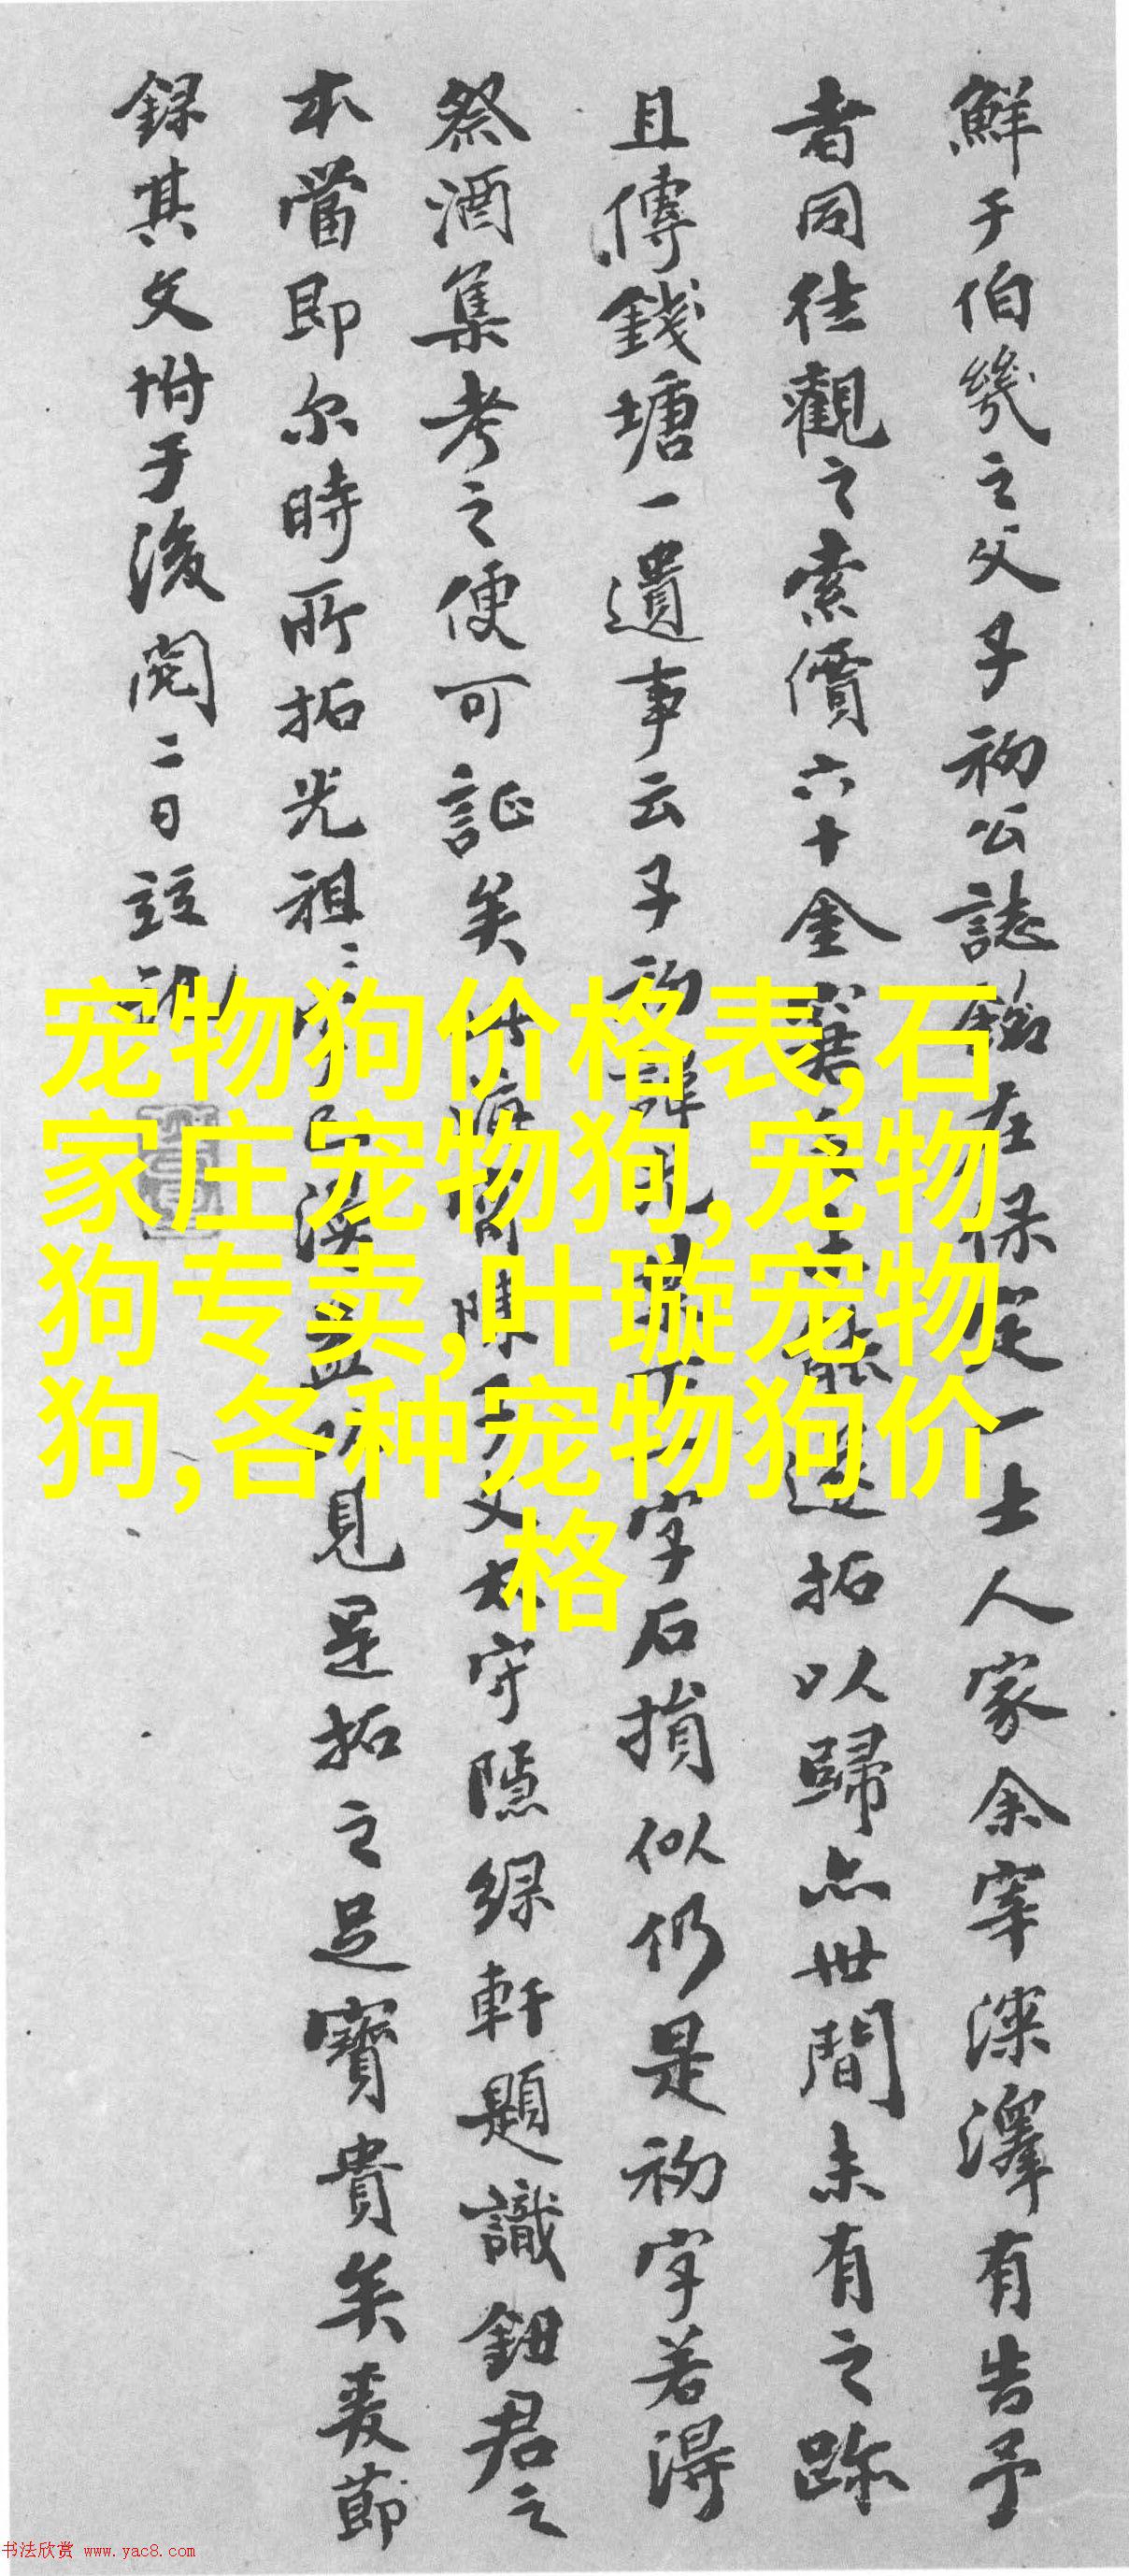 鮮于伯幾之父子初公誌銘在保定一士人家余宰深澤有告予
者同往觀之索價六十金能送拓以歸亦世間未有之跡
且傳錢塘一遺事云子初諱字石損似仍是初字若淂
祭酒集考之便可証矣陳太守隱綠軒題識鈕君之
本當即尔時所拓光祖見是拓之足寶貴矣爰節
録其文坿于後閏二日
宠物狗价格表,石
家庄宠物狗,宠物
狗专卖,叶璇宠物
狗,各种宠物狗价
格
书法欣赏 www.yac8.com